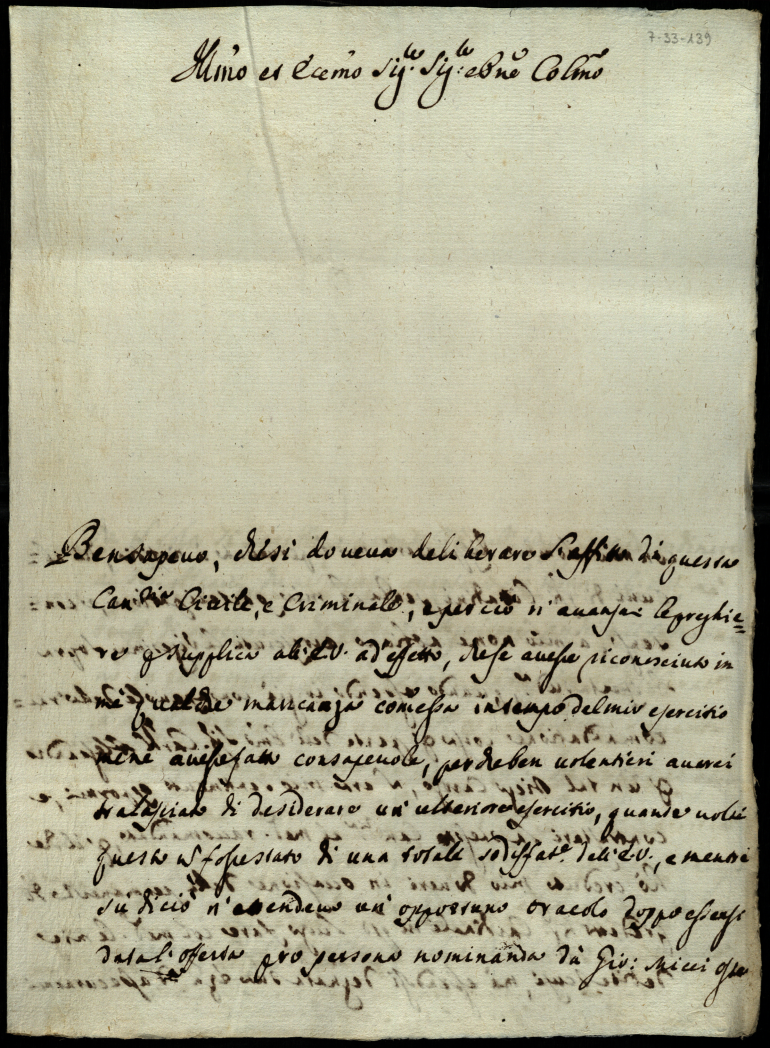 7-33-139
Illmo et Eccmo Sig.re Sig.re e Pne Colmo
Ben sapevo, che si doveva deliberare l'affitto di questa
Canc.ria Civile, e Criminale, e perciò n'avanzai le preghie=
re e supplica all'E.V. ad effetto, che se avesse riconosciuto in
me qualche mancanza comessa in tempo del mio esercitio
me ne avesse fatto consapevole, perche ben volentieri averei
tralasciato di desiderare un' ulteriore esercitio, quando volte
questo non fosse stato di una totale sodisfat.e dell'E.V., e mentre
su di ciò n'attendevo un' opportuno oracolo doppo essersi
data l'offerta pro persona nominanda da Gio: Micci